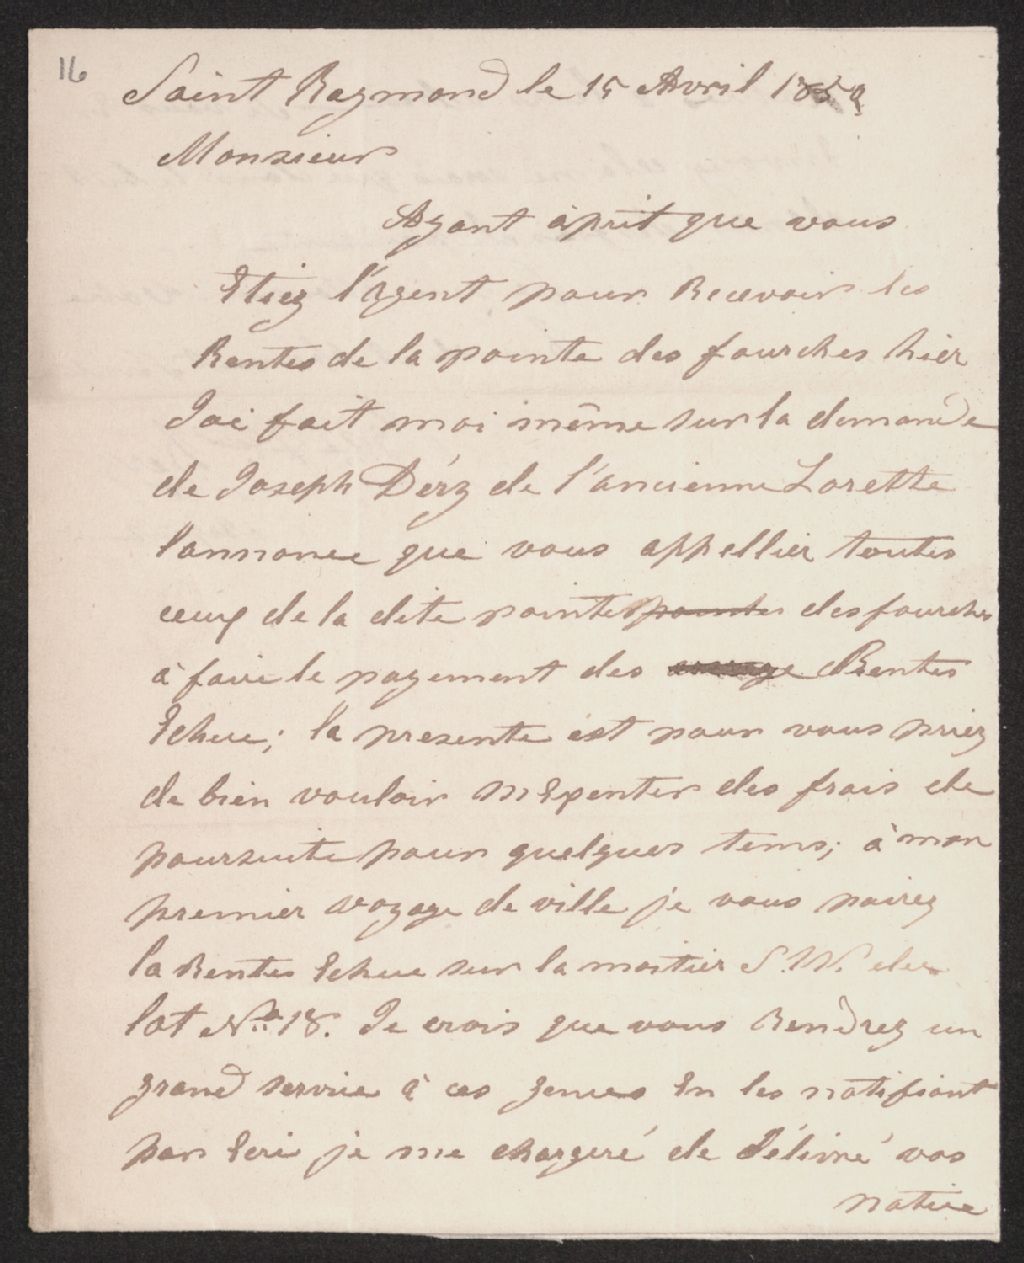 16
Saint Raymond le 15 Avril 1859
Monsieur
Ayant àprit que vous
Etiez l'agent pour Recevoir les
Rentes de la pointe des fourches hier
J'ai fait moi même sur la demande
de Joseph Déry de l'ancienne Lorette
l'annonce que vous appellier toutes
ceux de la dite pointe pointes des fourches
à faire le payement des Rentes
Echue; la presente est pour vous priez
de bien vouloir mExenter des frais de
poursuite pour quelques tems; à mon
premier voyage de ville je vous pairez
la Rentes Echue sur la moitier S.W. du
lot No. 18. Je crois que vous Rendrez un
grand service à ces gences En les notifiant
par Ecri je me chargeré de Délivré vos
notice